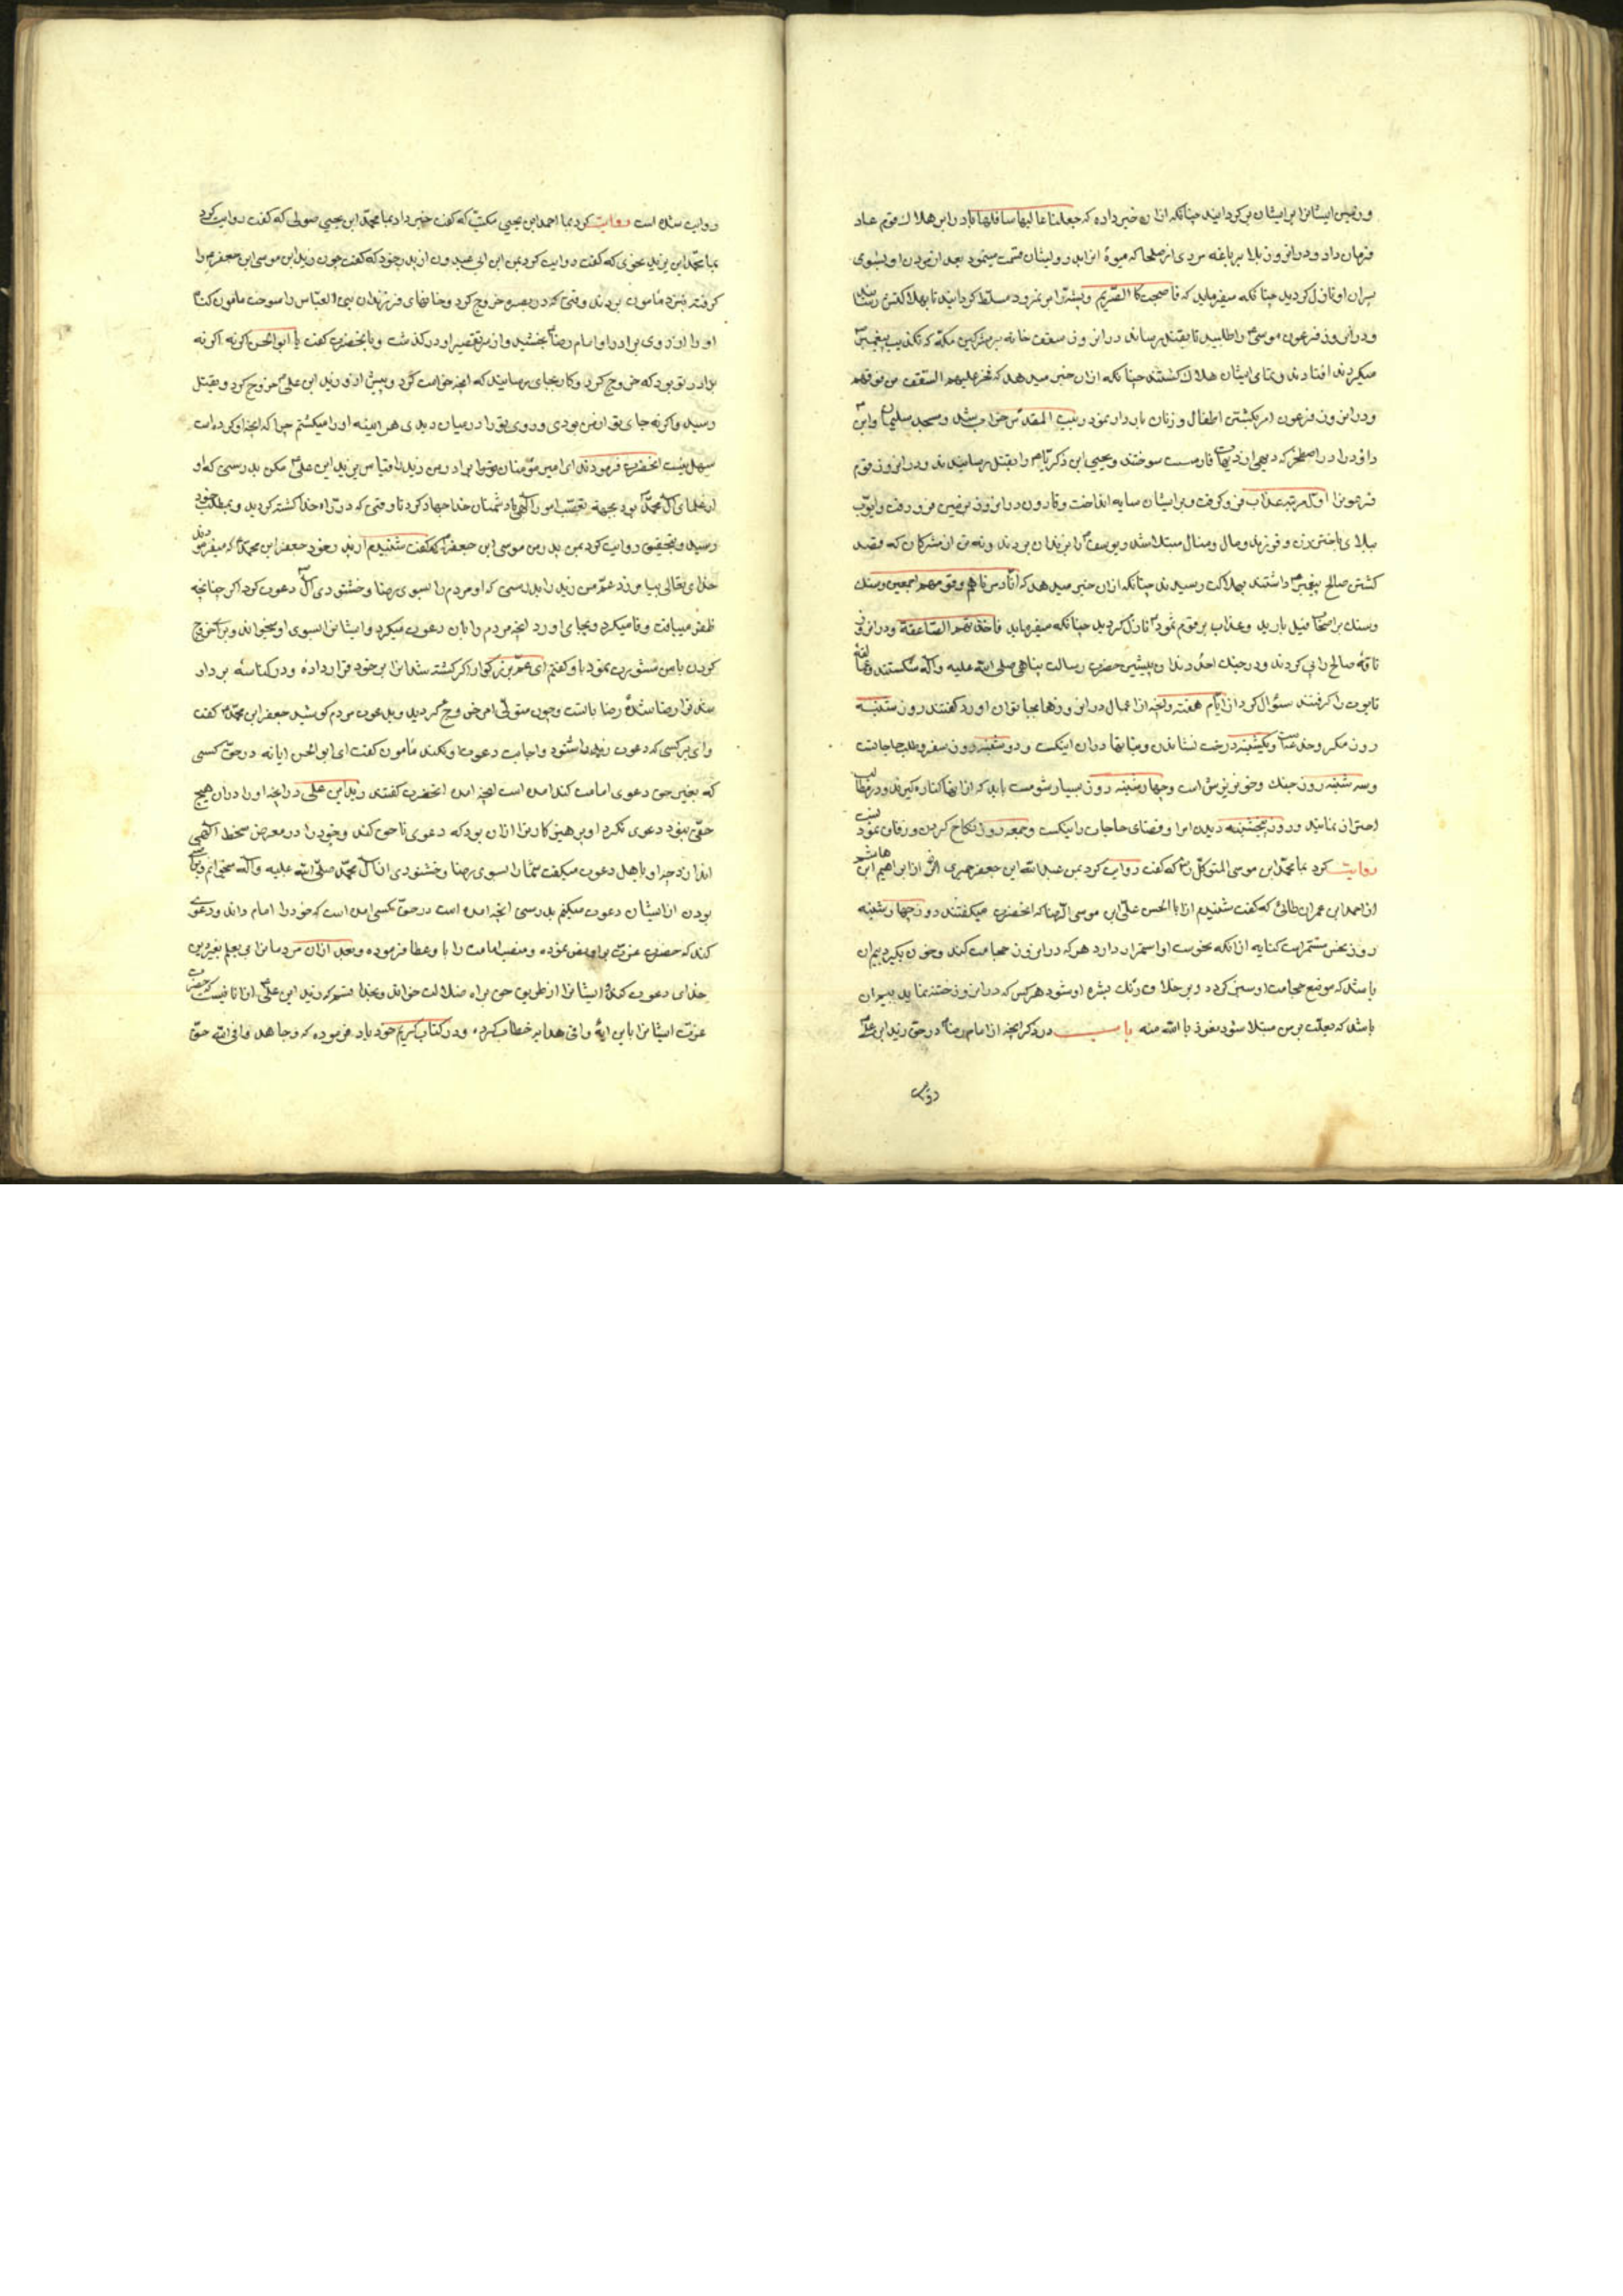 و زمین ایشانرا بر ایشان بر گردانید چنانکه ازان خبر داده که جعلنا عالیها سافلها باد را بر هلاک قوم عاد
فرمان داد و درانروز بلا بر باغه مردی از صلحا که میوهٔ انرا بدرویشان قسمت مینمود بعد از مردن او بسوی
پسران او نازل گردید چنانکه میفرماید که فاصبحت کالصریم و پشه را بر نمرود مسلط گردانید تا بهلاکتش رسانید
و در انروز فرعون موسی را طلبید تا بقتل رساند در انروز سقف خانه بر مشرکین مکه که تکذیب پیغمبر
میکردند افتاد و تمامی ایشان هلاک کشتند چنانکه ازان خبر میدهد که فخر علیهم السقف من فوقهم
و در انروز فرعون امر بکشتن اطفال و زنان باردار نمود و بیت المقدس خراب شد و مسجد سلیمان ابن
داود را در اصطخر که دیهی از دیهات فارسست سوختند و یحیی ابن ذکریا را بقتل رسانیدند و در انروز قوم
فرعونرا اول مرتبه عذاب فرو گرفت و بر ایشان سایه انداخت و قارون در انروز بزمین فرو رفت و ایوب
ببلای باختن زن و فرزند و مال و منال مبتلا شد و یوسف را بزندان بردند و نه تن از مشرکان که قصد
کشتن صالح پیغمبر داشتند بهلاکت رسیدند چنانکه ازان خبر میدهد که انا دمرناهم و قومهم اجمعین و سنک
و سنک بر اصحاب فیل بارید و عذاب بر قوم ثمود نازل گردید چنانکه میفرماید فاخذتهم الصاعقة و در انروز
ناقهٔ صالح را پی کردند و در جنک احد دندان پیشین حضرت رسالت پناهی صلی الله علیه و آله شکستند و عمالقه
تابوت را گرفتند سئوال کرد از ایام هفته و انچه از اعمال در انروزها بجا توان اورد گفتند روز شنبه
روز مکر و خدعه است و یکشنبه درخت نشاندن و بناها دران نیکست و دوشنبه روز سفر و طلب حاجاتست
و سه شنبه روز جنک و خونریزش است و چهارشنبه روز بسیار شومست باید که ازانها کناره گیرند و در مطالب
احتراز نمانید و روز پنجشنبه دیدن امرا و قضای حاجات را نیکست و جمعه روز نکاح کردن و زفاف نمودنست
روایت کرد بما محمد ابن موسی المتوکل که گفت روایت کرد بمن عبدالله ابن جعفر حمیری از ابراهیم ابن هاشم
از احمد ابن عمران طائی که گفت شنیدم از ابا الحسن علی ابن موسی الرضا که انحضرت میگفتند روز چهارشنبه
روز نحس مستمرست کنایه ازانکه نحوست او استمرار دارد هر که در انروز حجامت کند و خون بگیرد بیم ان
باشد که موضع حجامت او سبز گردد و بر خلاف رنک بشره او شود هر کس که در انروز ختنه نماید بیم ان
باشد که بعلت برص مبتلا شود نعوذ بالله منه باب در ذکر انچه از امام رضا در حق زید ابن علی
روایت شده است روایت کرد بما احمد ابن یحیی مکتب که گفت خبر داد بما محمد ابن یحیی صولی که گفت روایت کرد
بما محمد ابن یزید نحوی که گفت روایت کرد بمن ابن ابی عبدون از پدر خود که گفت چون زید ابن موسی ابن جعفر را
گرفته نزد مامون بردند وقتی که در بصره خروج کرد و خانهای فرزندان بنی العباس را سوخت مامون گناه
او را از روی برادر او امام رضا بخشید و از سر تقصیر او در گذشت و بانحضرت گفت یا ابو الحسن اگر نه
برادر تو بود که خروج کرد و کار بجای رسانید که انچه خواست کرد و پیش از او زید ابن علی خروج کرد و بقتل
رسید و اگر نه جای تو از من بودی و روی تو را درمیان دیدی هر اینه او را میکشتم چرا که انچه او کرده است
سهل نیست انحضرت فرمودند ای امیر مؤمنان تو برادر من زید را قیاس بزید ابن علی مکن بدرستی که او
از علمای آل محمد بود بجهة تعصب امور الهی با دشمنان خدا جهاد کرد تا وقتی که در راه خدا کشته گردید و بمطلب خود
رسید و بتحقیق روایت کرد بمن پدر من موسی ابن جعفر که گفت شنیدم از پدر خود جعفر ابن محمد که میفرمودند
خدای تعالی بیامرزد عم من زید را بدرستی که او مردم را بسوی رضا و خشنودی آل دعوت کرد اگر چنانچه
ظفر مییافت وفا میکرد و بجای اورد انچه مردم را بان دعوت میکرد و ایشانرا بسوی او میخواند و بر خروج
کردن با من مشورت نمود باو گفتم ای عم بزرگوار اگر کشته شدنرا بر خود قرار داده و در کناسه بر دار
شدنرا رضا شدهٔ رضا باتست و چون متولی امر خروج گردید و بدعوت مردم کوشید جعفر ابن محمد گفت
وای بر کسی که دعوت زید را شنود و اجابت دعوت او نکند مامون گفت ای ابو الحسن ایا نه در حق کسی
که بغیر حق دعوی امامت کند امده است انچه امده انحضرت گفتند زید ابن علی در انچه او را دران هیچ
حقی نبود دعوی نکرد او پرهیز کارتر ازان بود که دعوی ناحق کند و خود را در معرض سخط الهی
اندازد چرا و باهل دعوت میگفت شما را بسوی رضا و خشنودی از آل محمد صلی الله علیه و آله میخوانم
بودن از ایشان دعوت میکنم بدرستی انچه امده است در حق کسی امده است که خود را امام داند و دعوی
کند که حضرت عزت بر او نص نموده و منصب امامت را باو عطا فرموده و بعد ازان مردمانرا بی علم بغیر دین
خدای دعوت کند و ایشانرا از طریق حق براه ضلالت خواند و بخدا قسم که زید ابن علی ازانا نیست که حضرت
عزت ایشانرا باین ایهٔ وافی هدایه خطاب کرده و در کتاب کریم خود یاد فرموده که وجاهدوا فی الله حق